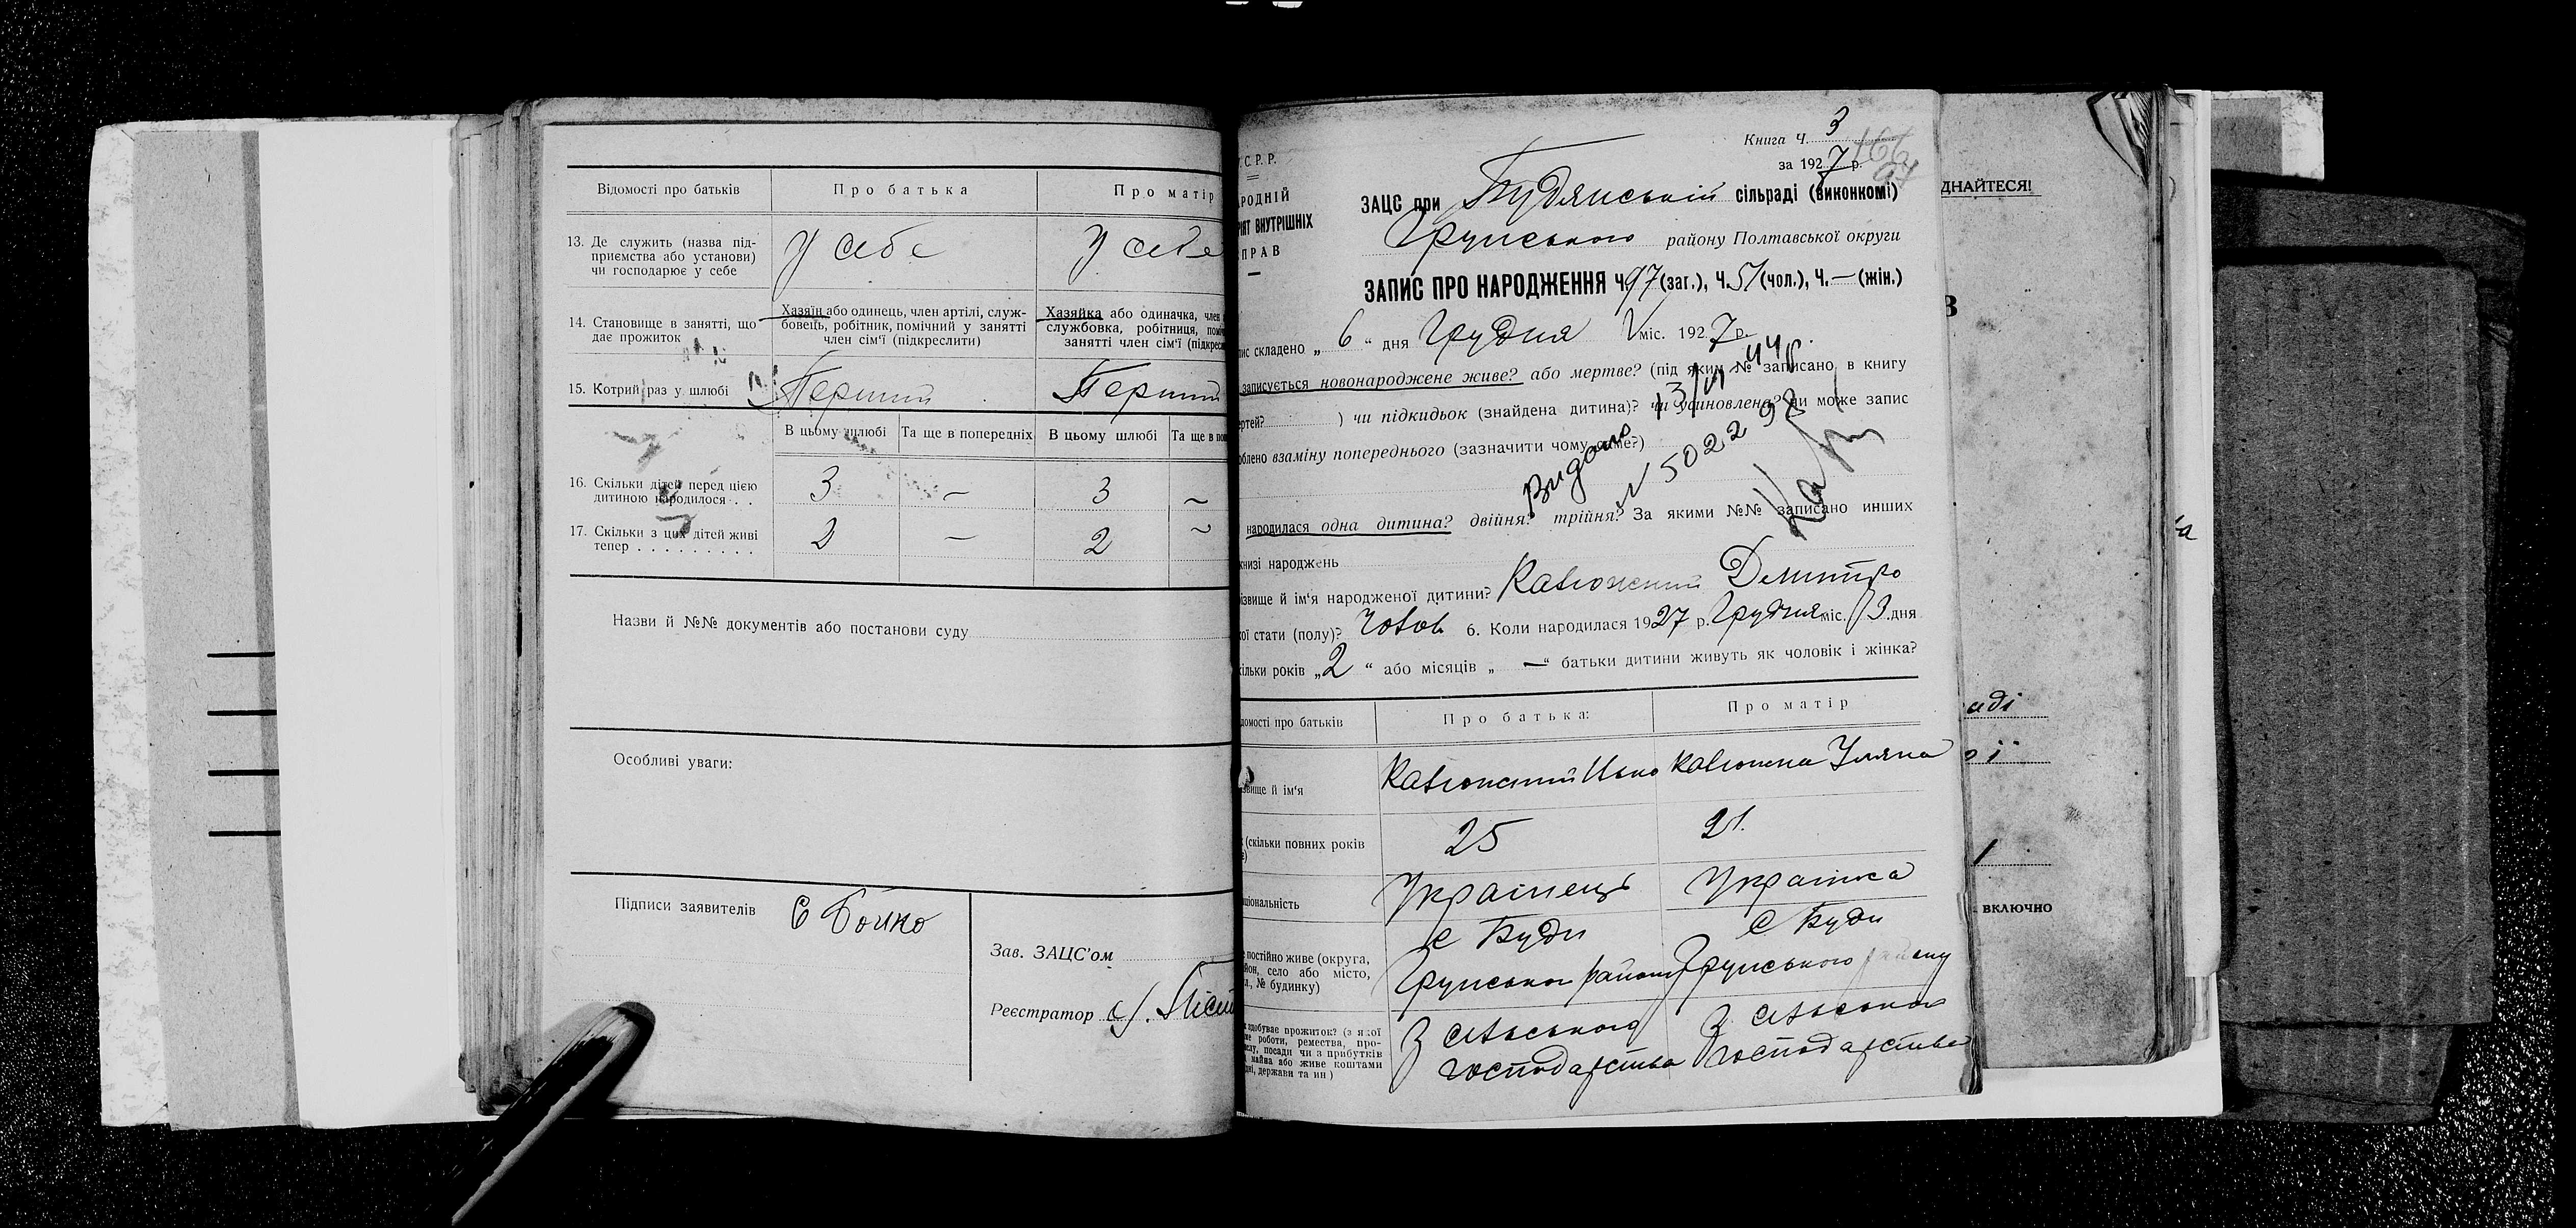 Відомості про батьків
Про батька
Про матір
13. Де служить (назва під-
приємства або установи)
чи господарює у себе
У себе
У себе
14. Становище в занятті, що
дає прожиток
Хазяїн або одинець, член артілі, служ-
бовець, робітник, помічний у занятті
член сім'ї (підкреслити)
Хазяйка або одиначка, член
службовка, робітниця, поміч
занятті член сім'ї (підкрес
15. Котрий раз у шлюбі
Перший
Перший
В цьому шлюбі
Та ще в попередніх
В цьому шлюбі
Та ще в поп
16. Скільки дітей перед цією
дитиною народилося . .
3
—
3
~
17. Скільки з цих дітей живі
тепер . . . . . . . . .
2
—
2
~
Назви й №№ документів або постанови суду
Особливі уваги:
Підписи заявителів
Є Бойко
Зав. ЗАЦС'ом
Реєстратор
Книга Ч. 3
за 1927 р.
166
97
.С.Р.Р.
АРОДНІЙ
РІЯТ ВНУТРІШНІХ
ПРАВ
ЗАЦС при Будянській сільраді (виконкомі)
Грунського району Полтавської округи
ЗАПИС ПРО НАРОДЖЕННЯ Ч. 97 (заг.), Ч. 51 (чол.), Ч. — (жін.)
пис складено „ 6 " дня Грудня міс. 1927 р.
записується новонароджене живе? або мертве? (під яким № записано в книгу
ертей? ) чи підкидьок (знайдена дитина)? чи усиновлена? чи може запис
облено взаміну попереднього (зазначити чому саме?)
Видано
N 502298
народилася одна дитина? двійня? трійня? За якими №№ записано инших
книзі народжень
ізвище й ім'я народженої дитини? Кавюжний Дмитро
кої стати (полу)? Чолов. 6. Коли народилася 1927 р. Грудня міс. 3 дня
кільки років „ 2 " або місяців „ — " батьки дитини живуть як чоловік і жінка?
домості про батьків
Про батька:
Про матір
звище й ім'я
(скільки повних років
25
21.
ціональність
Українець
Українка
постійно живе (округа,
йон, село або місто,
л., № будинку)
с Буди
Грунського району
с Буди
Грунського району
здобуває прожиток? (з якої
ме роботи, ремества, про-
еду, посади чи з прибутків
майна або живе коштами
дні, держави та ин)
З сільського
господарства
З сільського
господарства
ДНАЙТЕСЯ!
В
аді
ої
1
включно